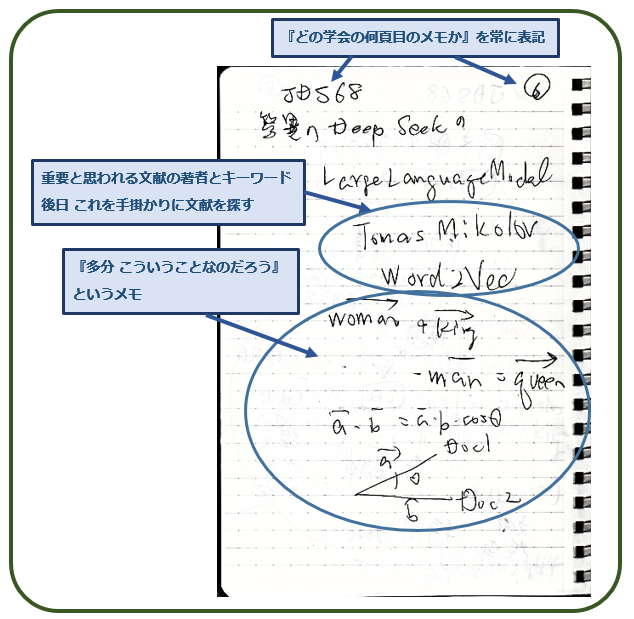 『どの学会の何頁目のメモか』を常に表記
JDS68
⑥
DeepSeekの
重要と思われる文献の著者とキーワード
後日 これを手掛かりに文献を探す
Large Language Modal
Tomas Mikolov
Word2Vec
『多分 こういうことなのだろう』
というメモ
woman + king
- man = queen
a・b = a・b・cosθ
Doc1
a
θ
b
Doc2